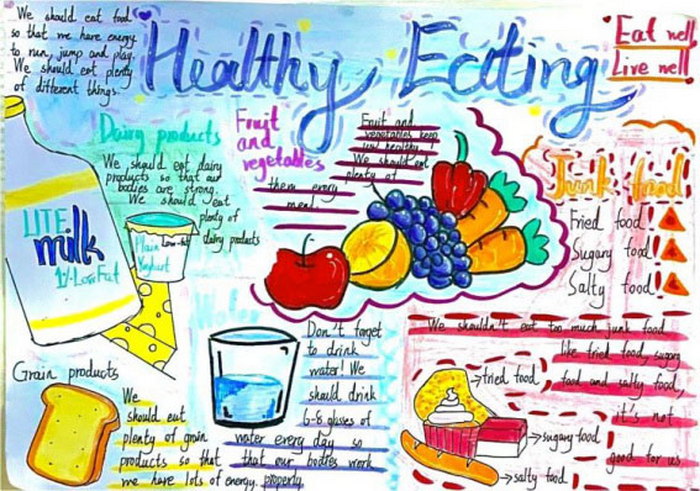 We should eat food
so that we have energy
to run, jump and play.
We should eat plenty
of different things.
Healthy Eating
Eat well
Live well
Dairy products
We should eat dairy
products so that our
bodies are strong.
We should eat
plenty of
dairy products
LITE
milk
1%-Low Fat
Plain Low-fat
Yoghurt
Fruit
and
vegetables
Fruit and
vegetables keep
you healthy.
We should eat
plenty of
them every
meal.
Junk food
Fried food!
Sugary food!
Salty food!
Water
Don't forget
to drink
water! We
should drink
6-8 glasses of
water every day so
that our bodies work
properly.
Grain products
We
should eat
plenty of grain
products so that
we have lots of energy.
We shouldn't eat too much junk food
like fried food, sugary
food and salty food,
it's not
good for us
fried food
sugary food
salty food